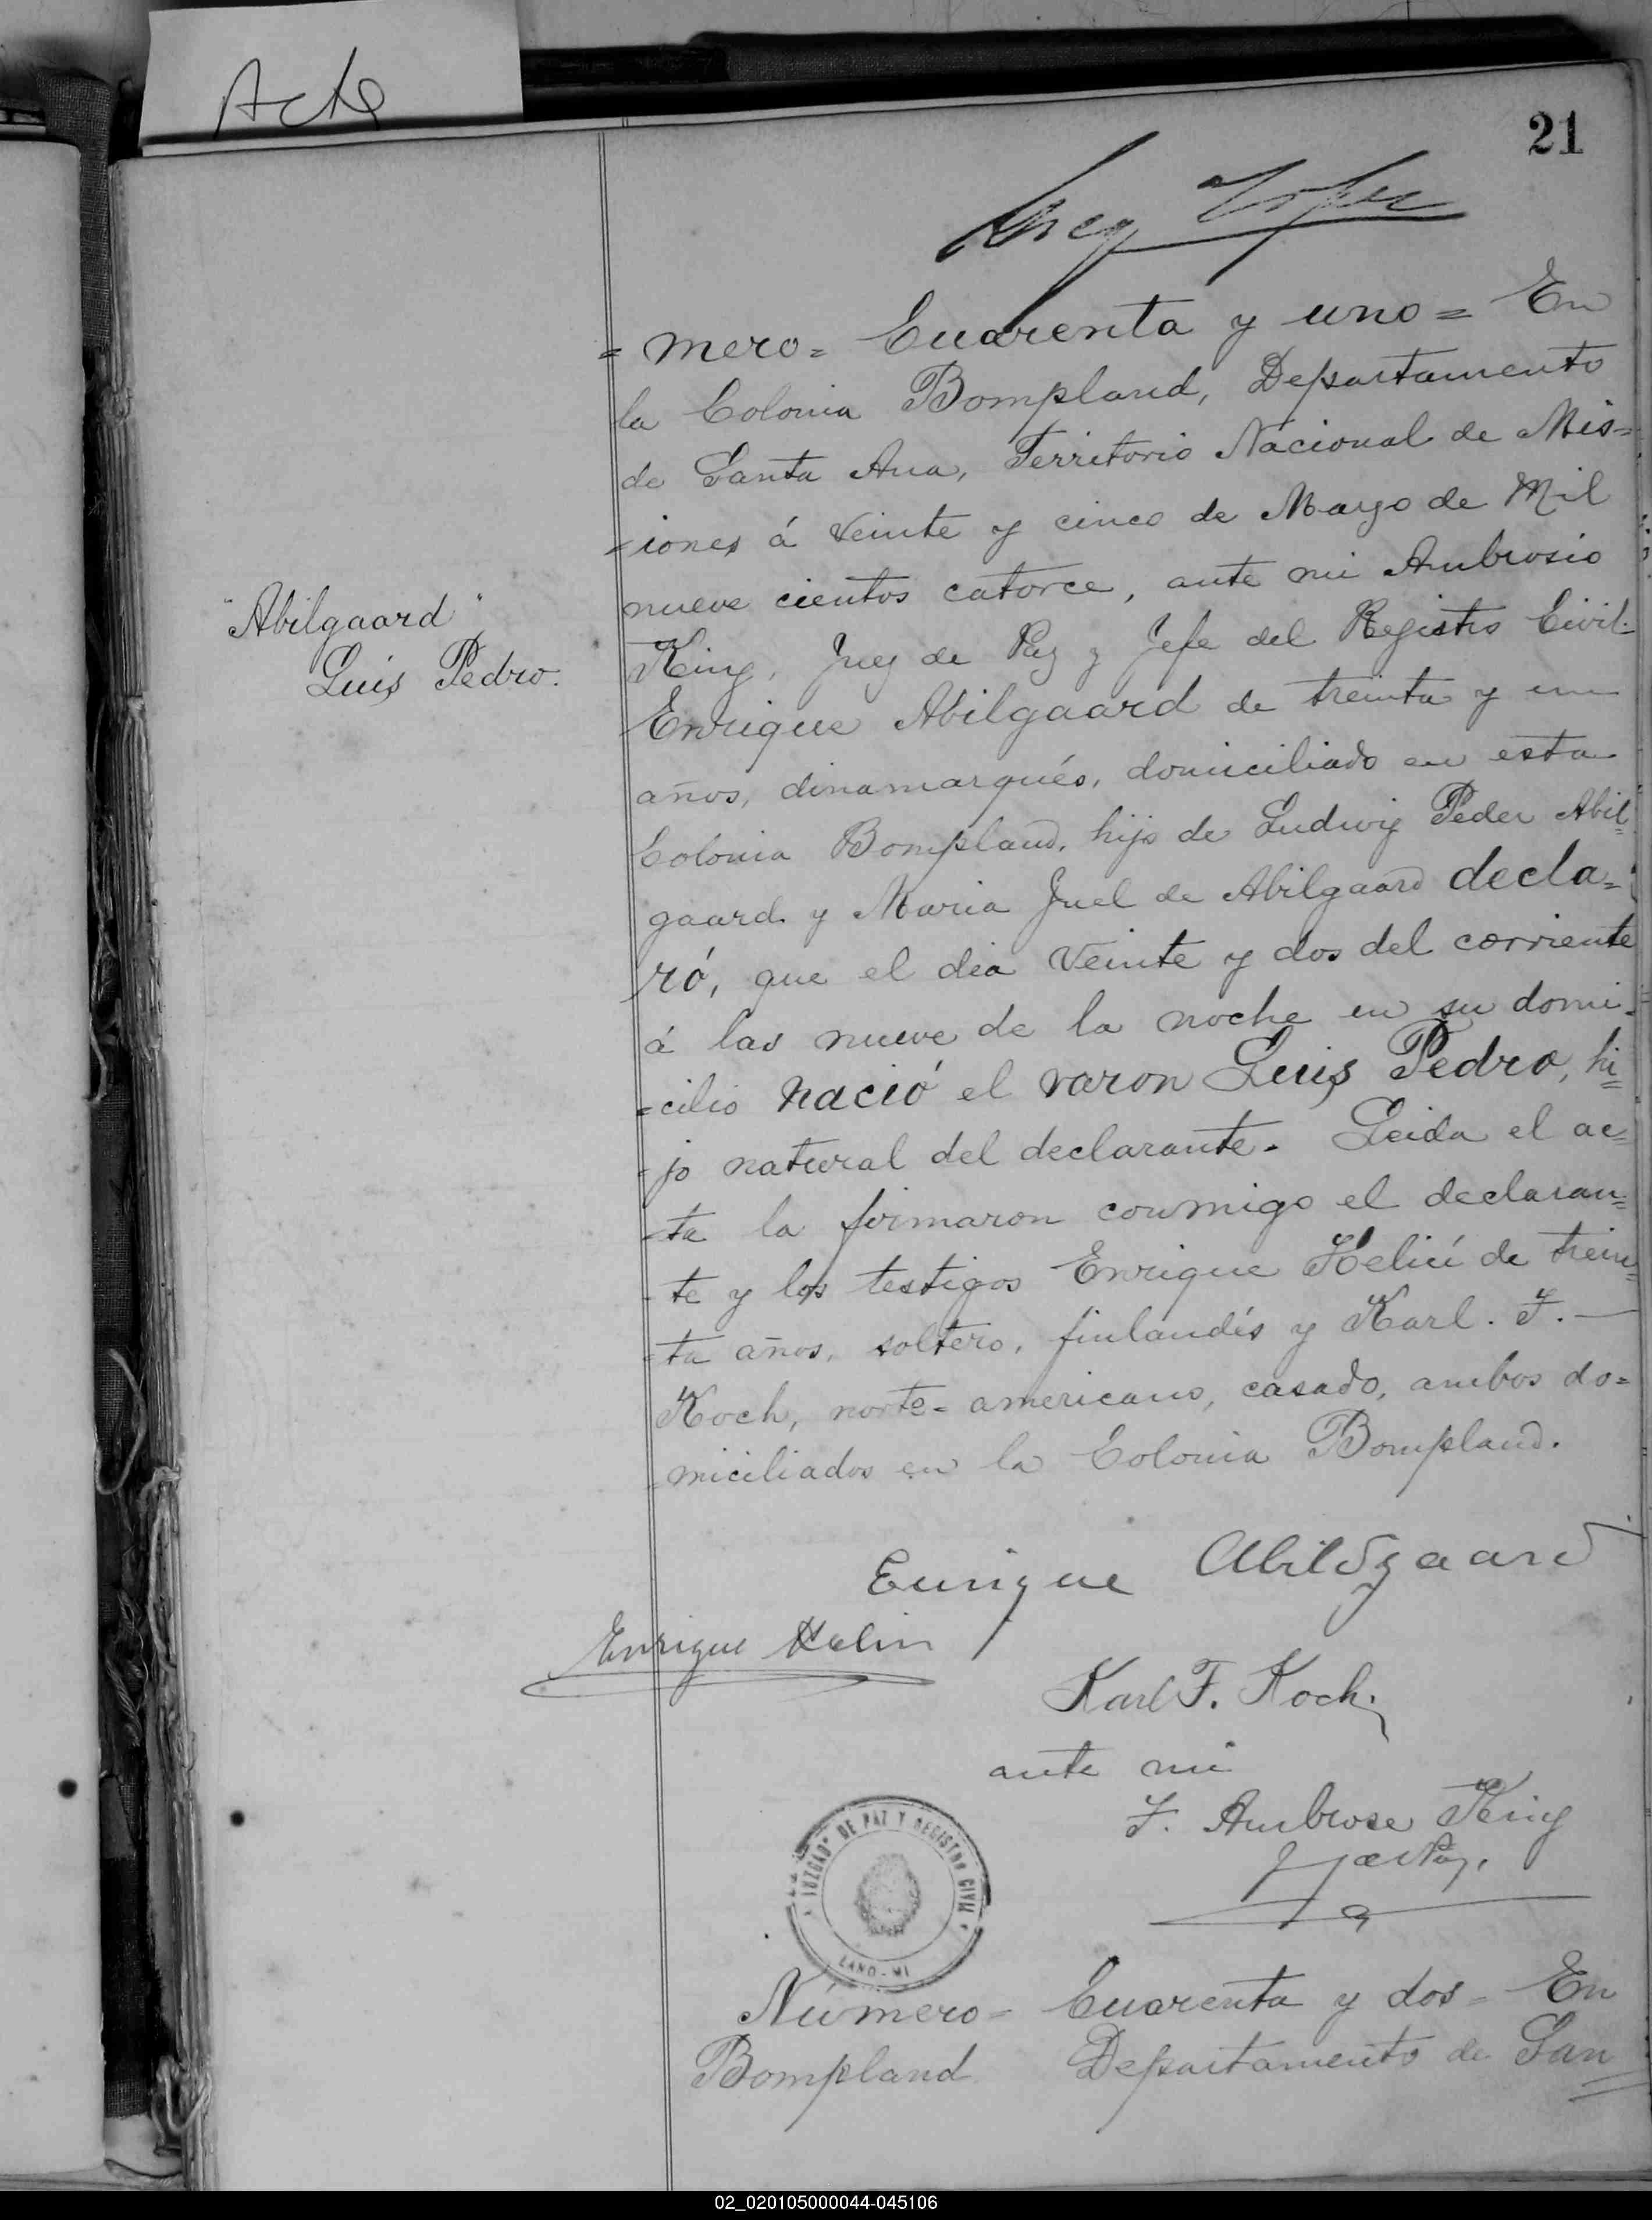 Acta
21
= mero = Cuarenta y uno = En
la Colonia Bompland, Departamento
de Santa Ana, Territorio Nacional de Mis=
=iones á veinte y cinco de Mayo de Mil
nueve cientos catorce, ante mi Ambrosio
"Abilgaard"
Luis Pedro.
King, Juez de Paz y Jefe del Registro Civil
Enrique Abilgaard de treinta y un
años, dinamarqués, domiciliado en esta
Colonia Bompland, hijo de Ludwig Peder Abil=
gaard y Maria Juel de Abilgaard decla=
ró, que el dia veinte y dos del corriente
á las nueve de la noche en su domi=
=cilio nació el varon Luis Pedro, hi=
=jo natural del declarante. Leida el ac=
=ta la firmaron conmigo el declaran=
te y los testigos Enrique Helin de trein=
=ta años, soltero, finlandés y Karl. F. —
Koch, norte=americano, casado, ambos do=
miciliados en la Colonia Bompland.
Enrique Abildgaard
Enrique Helin
Karl F. Koch.
ante mi
F. Ambrose King
J de Paz.
JUZGADO DE PAZ Y REGISTRO CIVIL
LAND-MI
Número = Cuarenta y dos = En
Bompland Departamento de San
02_020105000044-045106